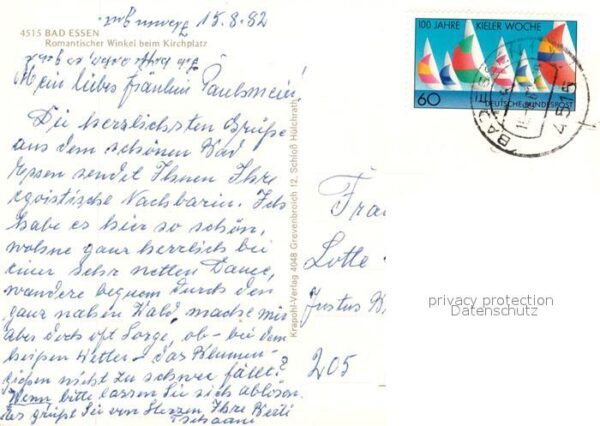 15.8.82
4515 BAD ESSEN
Romantischer Winkel beim Kirchplatz
Mein liebes Fräulein Paulsmeier!
Die herzlichsten Grüße
aus dem schönen Bad
Essen sendet Ihnen Ihre
egoistische Nachbarin. Ich
habe es hier so schön,
wohne ganz herrlich bei
einer sehr netten Dame,
wandere bequem durch den
ganz nahen Wald, mache mir
aber doch oft Sorge, ob - bei dem
heißen Wetter - das Blumen-
gießen nicht zu schwer fällt?
Wenn bitte lassen Sie sich ablösen.
es grüßt Sie von Herzen Ihre
Krapohl-Verlag 4048 Grevenbroich 12, Schloß Hülchrath
100 JAHRE KIELER WOCHE
60 DEUTSCHE BUNDESPOST
BAD ESSEN
4515
Lotte
Justus
205
privacy protection
Datenschutz